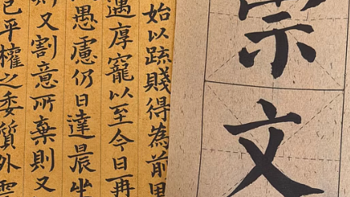 文
始以疏賤得為前
遇厚寵以至今日再
愚慮仍日達晨坐
又割意所棄則又
平權之委質外